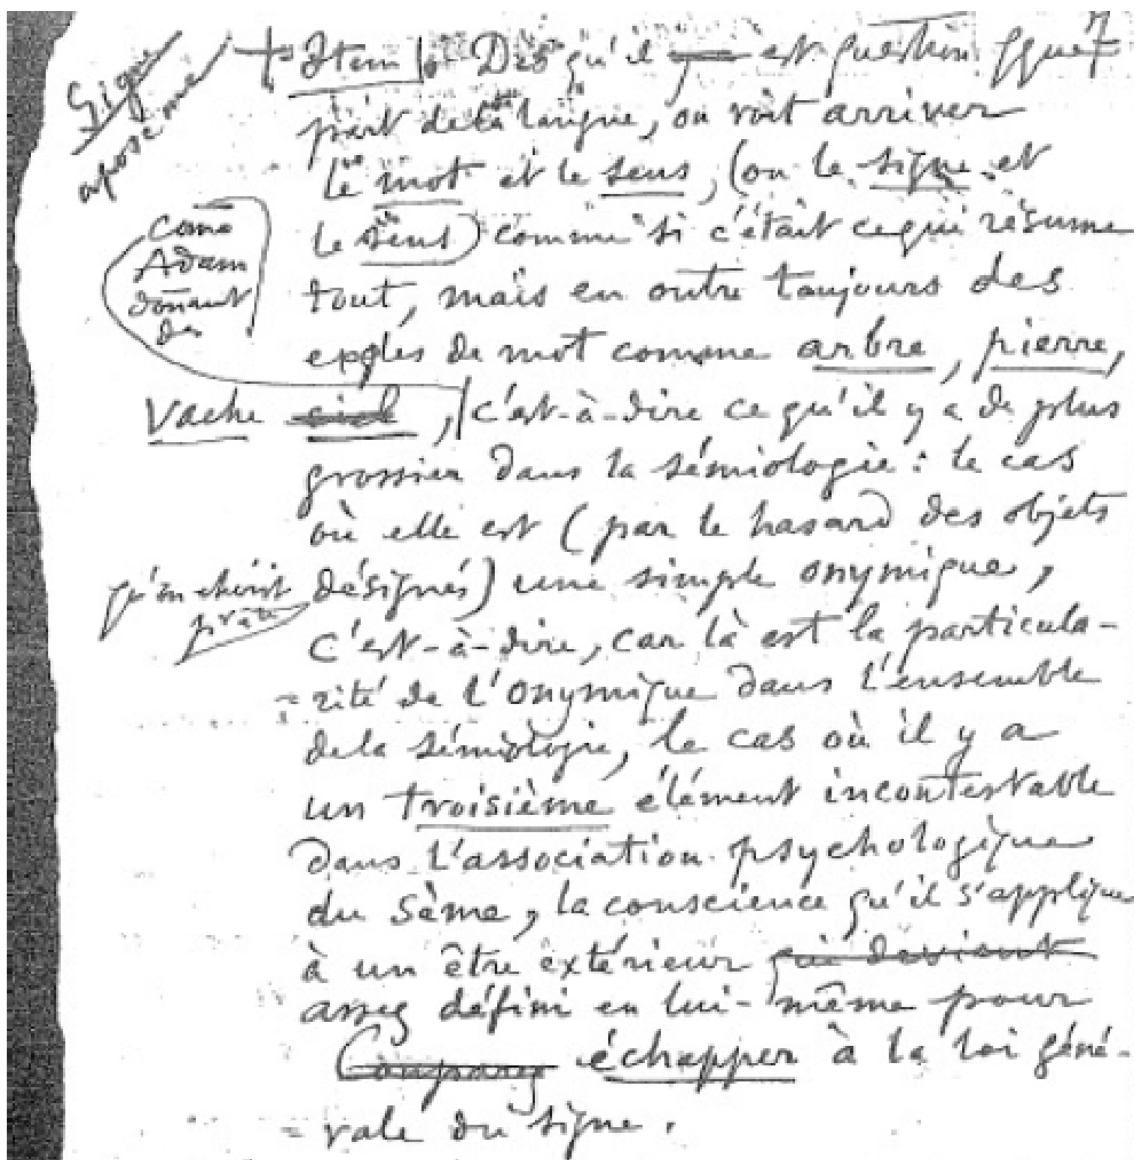 Signe
aposème
+ Item. Dès qu'il est question qque
part de la langue, on voit arriver
le mot et le sens, (ou le signe et
le sens) comme si c'était ce qui résume
tout, mais en outre toujours des
exples de mot comme arbre, pierre,
vache ciel, c'est-à-dire ce qu'il y a de plus
Come
Adam
donnant
des
grossier dans la sémiologie : le cas
où elle est (par le hasard des objets
qu'on choisit désignés) une simple onymique,
c'est-à-dire, car là est la particula-
=rité de l'onymique dans l'ensemble
de la sémiologie, le cas où il y a
un troisième élément incontestable
dans l'association psychologique
du sème, la conscience qu'il s'applique
à un être extérieur qui devient
assez défini en lui-même pour
Comparez échapper à la loi géné-
=rale du signe.